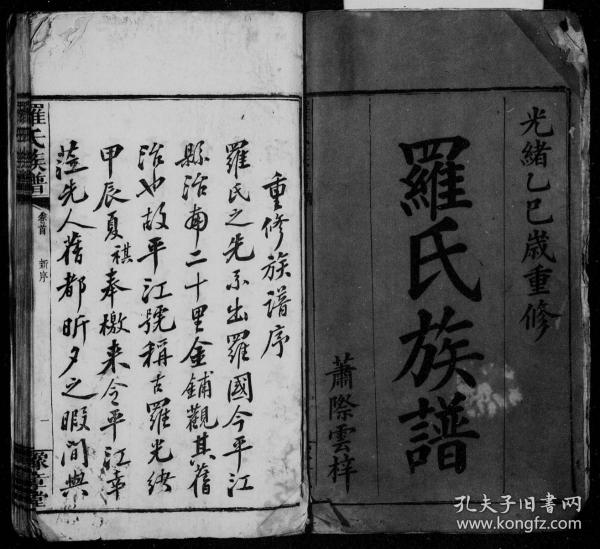 光緒乙巳歲重修
羅氏族譜
蕭際雲梓
重修族譜序
羅氏之先系出羅國今平江
縣治南二十里金鋪觀其舊
治也故平江號稱古羅光緒
甲辰夏祺奉檄来令平江幸
蒞先人舊都昕夕之暇間與
羅氏族譜
卷首
新序
一
豫章堂
孔夫子旧书网
www.kongfz.com